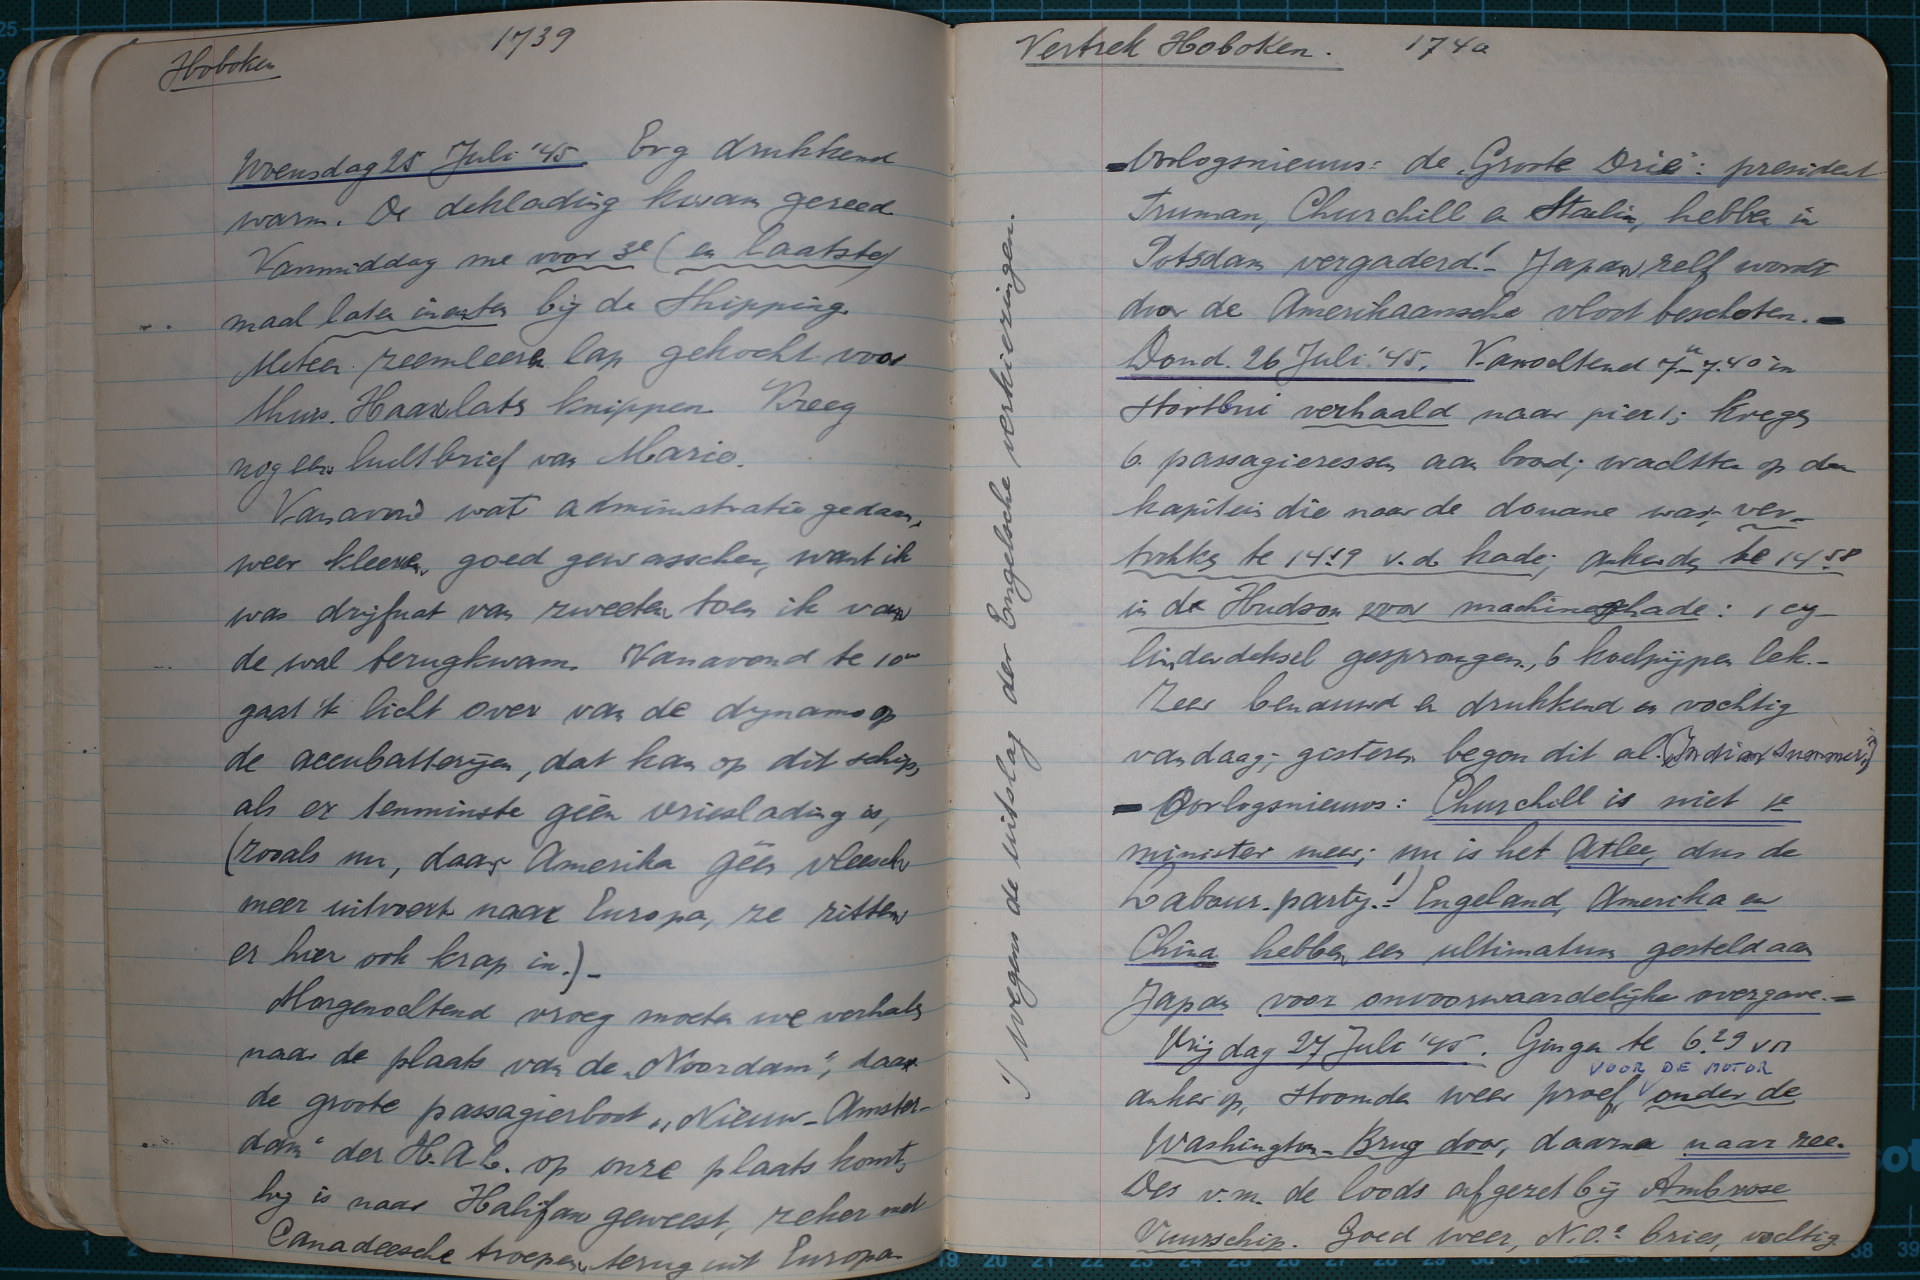 Hoboken 1739
Woensdag 25 Juli '45 Erg drukkend
warm. De deklading kwam gereed
Vanmiddag me voor 3e (en laatste)
maal laten inenten bij de Shipping.
Meteen zeemleeren lap gekocht voor
thuis. Haar laten knippen. Kreeg
nog een luchtbrief van Marie.
Vanavond wat administratie gedaan,
weer kleeren goed gewasschen, want ik
was drijfnat van zweeten toen ik van
de wal terugkwam. Vanavond te 10
gaat 't licht over van de dynamo op
de accubatterijen, dat kan op dit schip,
als er tenminste géén vrieslading is,
(zooals nu, daar Amerika géén vleesch
meer uitvoert naar Europa, ze zitten
er hier ook krap in.) -
Morgenochtend vroeg moeten we verhalen
naar de plaats van de „Noordam", daar
de groote passagierboot „Nieuw-Amster-
dam" der H.A.L. op onze plaats komt,
hij is naar Halifax geweest, zeker met
Canadeesche troepen terug uit Europa
Vertrek Hoboken. 1740
- Oorlogsnieuws: de „Groote Drie": president
Truman, Churchill en Stalin, hebben in
Potsdam vergaderd! - Japan zelf wordt
door de Amerikaansche vloot beschoten. -
Dond. 26 Juli '45. Vanochtend 7u-7.40 in
stortbui verhaald naar pier 1; kregen
6 passagieressen aan boord; wachtten op den
kapitein die naar de douane was; ver-
trokken te 14.19 v.d. kade; ankerden te 14.58
in de Hudson voor machineschade: 1 cy-
linderdeksel gesprongen, 6 koelpijpen lek. -
Zeer benauwd en drukkend en vochtig
vandaag; gisteren begon dit al. („Indian Summer")
- Oorlogsnieuws: Churchill is niet 1e
minister meer; nu is het Atlee, dus de
Labour-party.!) Engeland, Amerika en
China hebben een ultimatum gesteld aan
Japan voor onvoorwaardelijke overgave. -
Vrijdag 27 Juli '45. Gingen te 6.29 vm
VOOR DE MOTOR
anker op, stoomden weer proef, onder de
Washington-Brug door, daarna naar zee.
Des v.m. de loods afgezet bij Ambrose
Vuurschip. Goed weer, N.O.e bries, vochtig
!) wegens de uitslag der Engelsche verkiezingen.